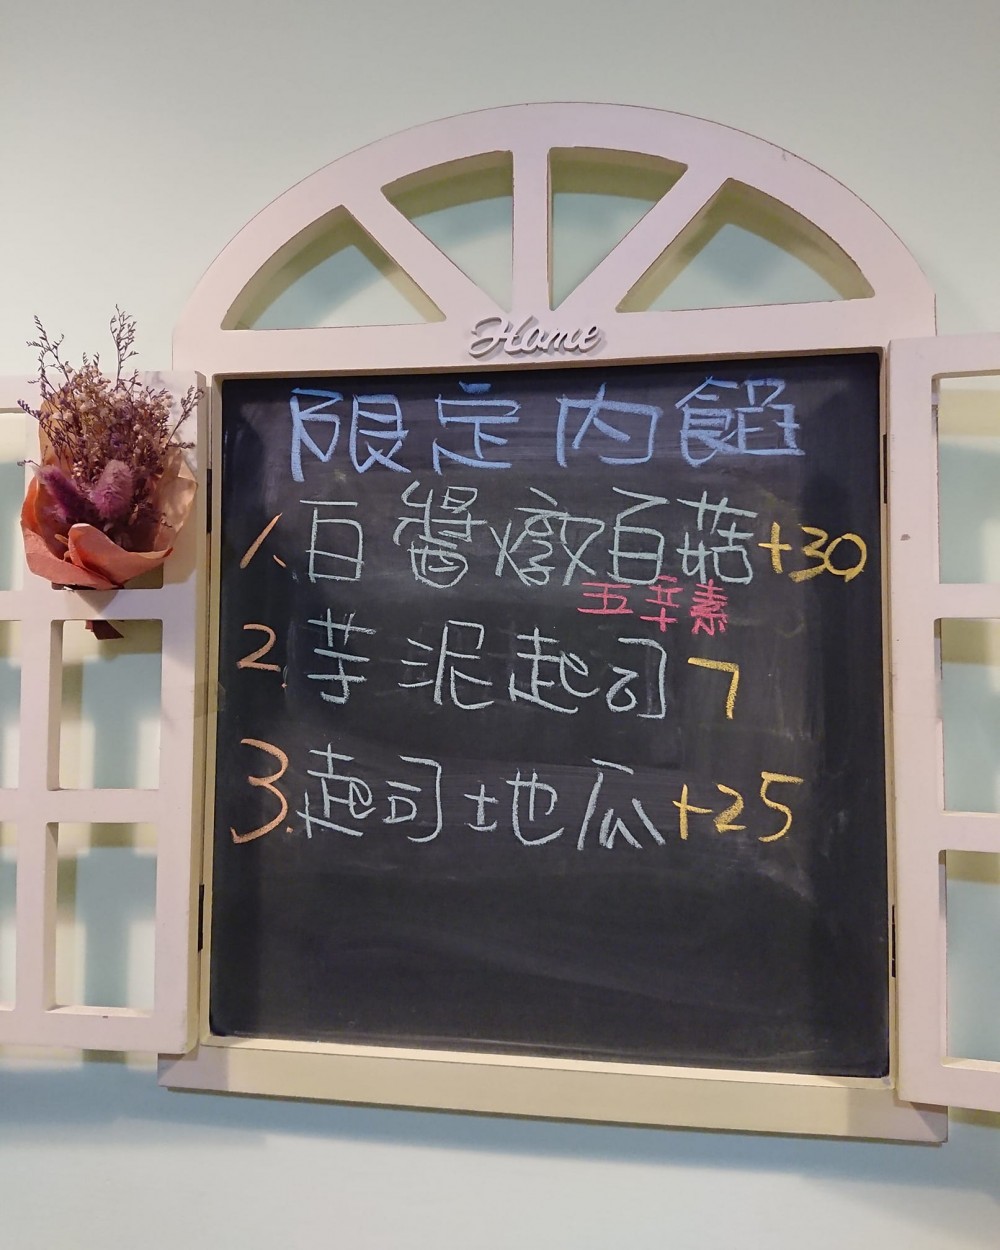 Home
限定內餡
1.白醬燉百菇+30
五辛素
2.芋泥起司7
3.起司地瓜+25